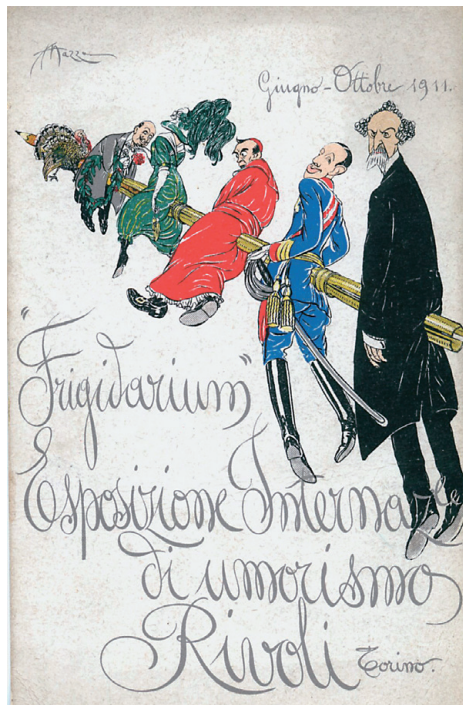 AMazza
Giugno-Ottobre 1911.
"Frigidarium"
Esposizione Internazle
di umorismo
Rivoli Torino.